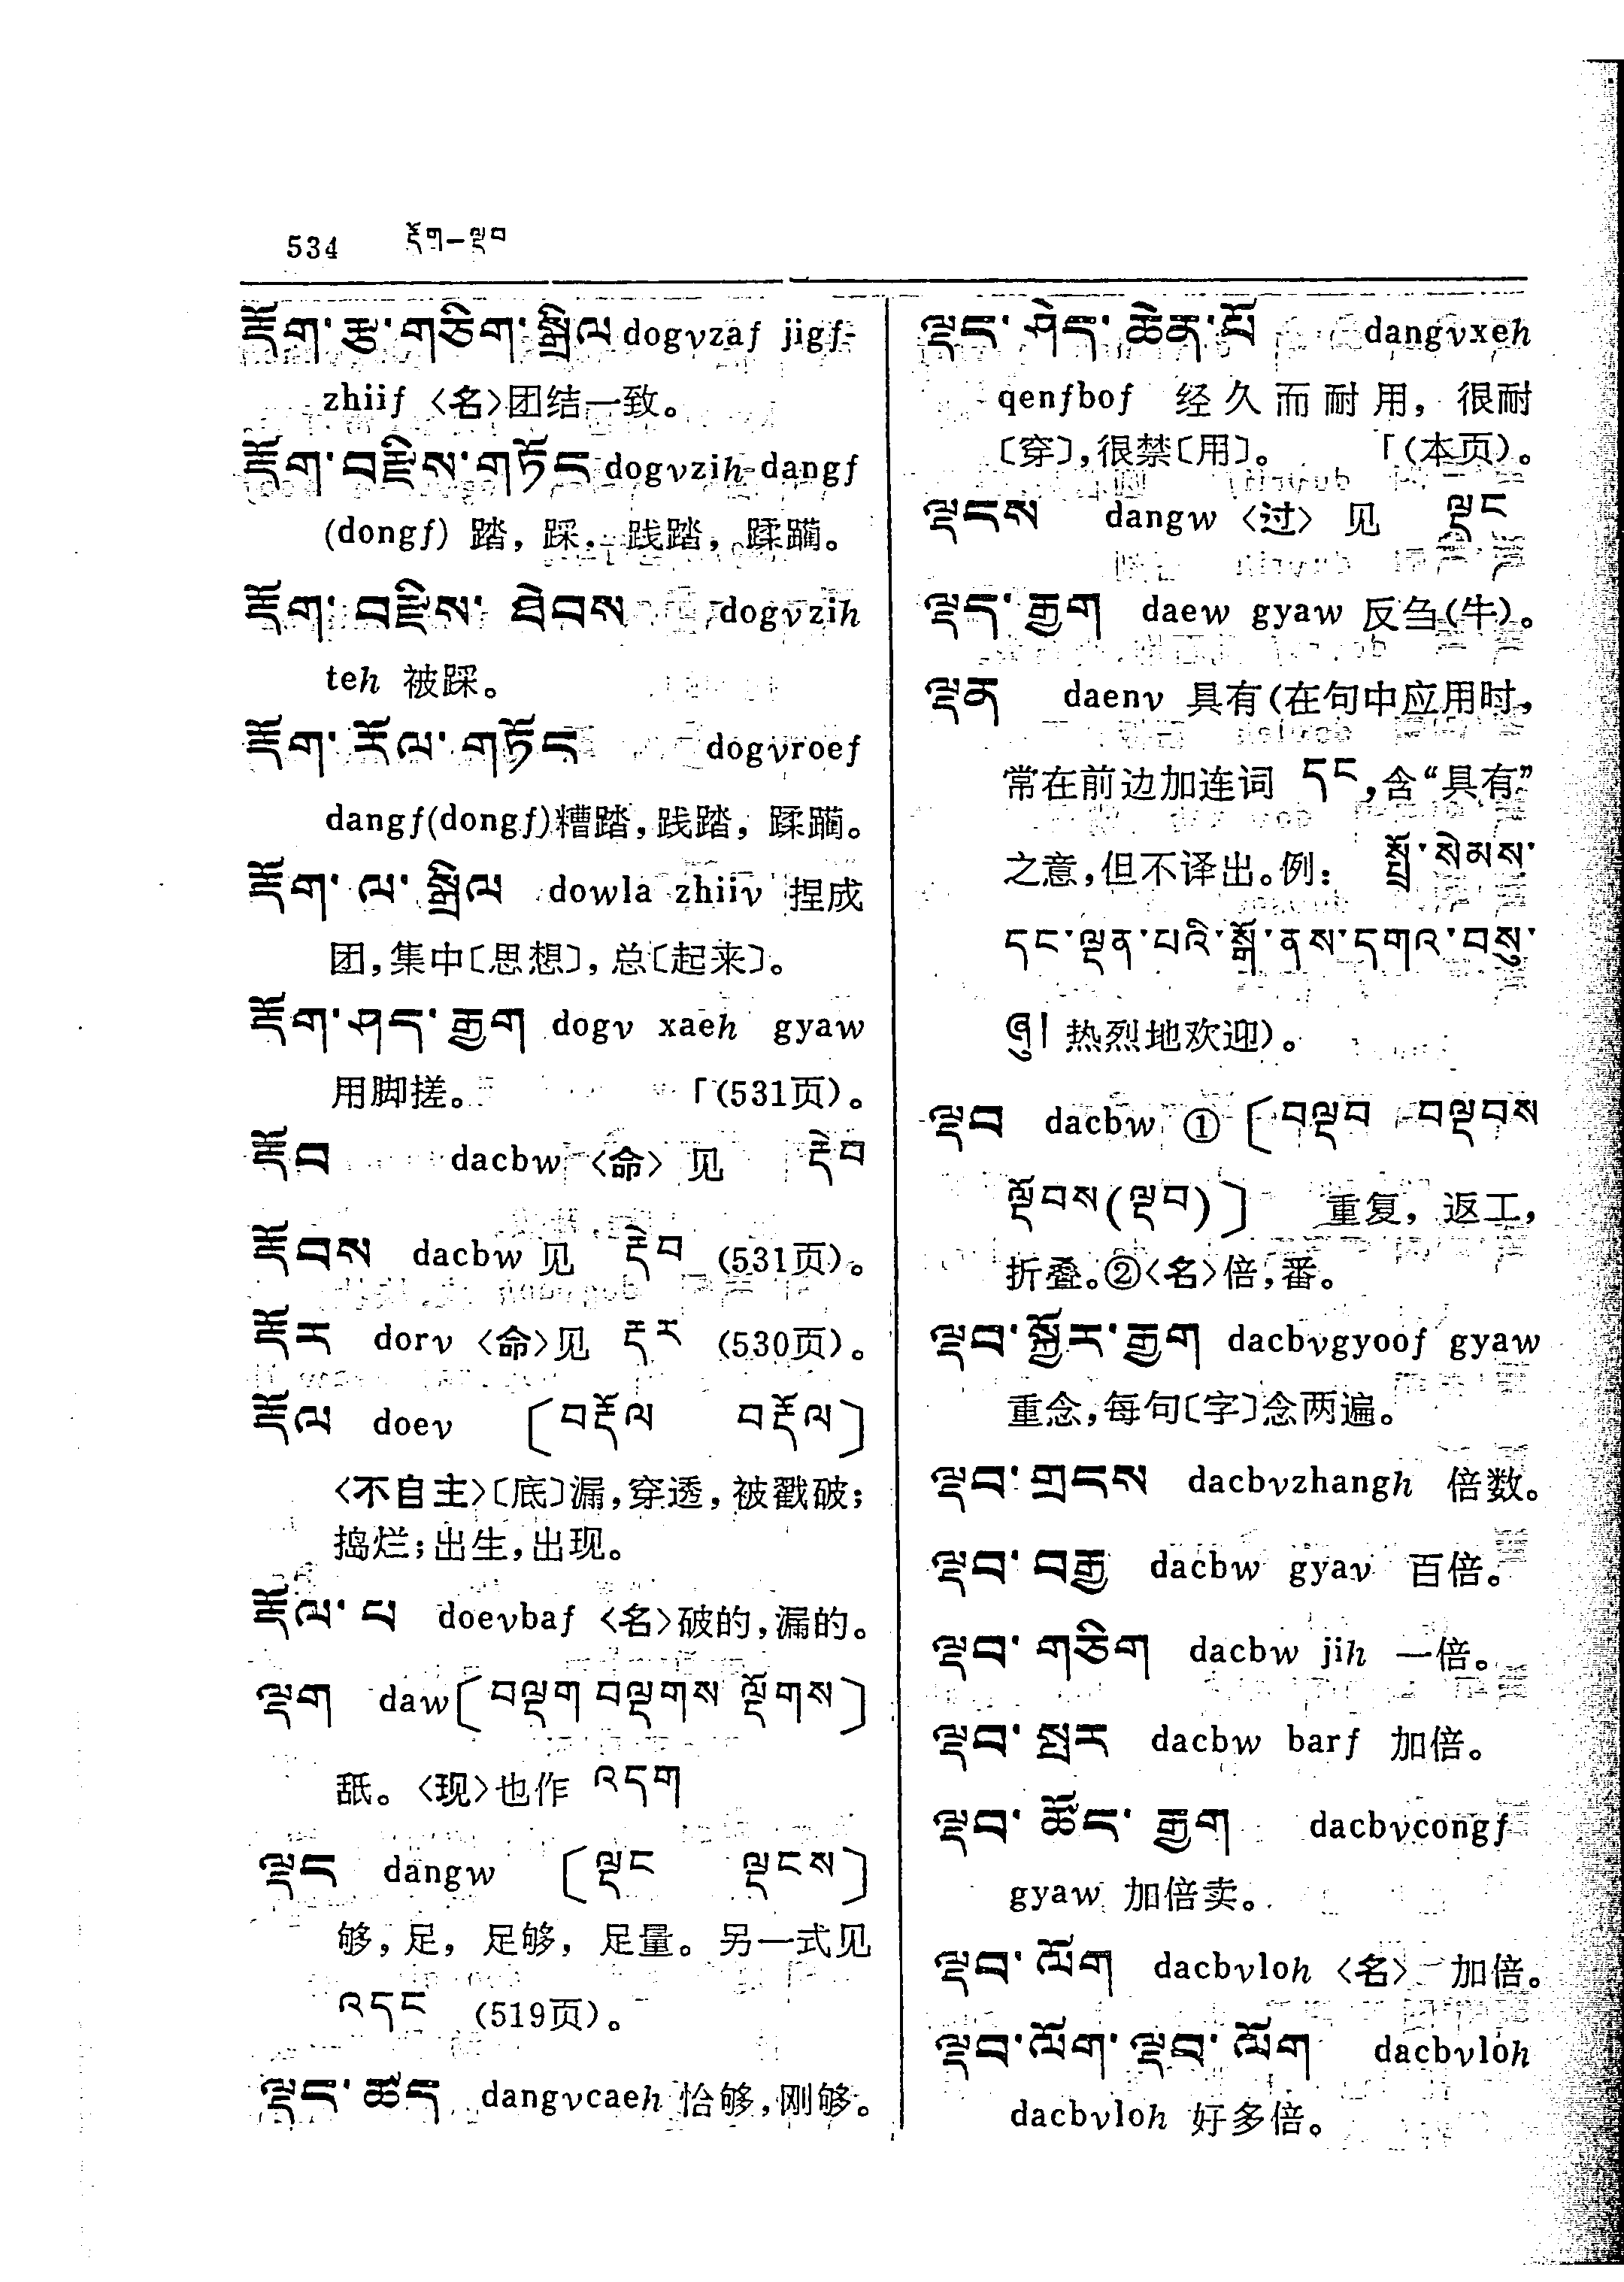 534 རྡོག—ལྡབ
རྡོག་རྩ་གཅིག་སྒྲིལ dogvzaf jigf-
zhiif 〈名〉团结一致。
རྡོག་བརྫིས་གཏོང dogvzih dangf
(dongf) 踏，踩，践踏，蹂躏。
རྡོག་བརྫིས་ཐེབས dogvzih
teh 被踩。
རྡོག་རོལ་གཏོང dogvroef
dangf(dongf)糟踏，践踏，蹂躏。
རྡོག་ལ་སྒྲིལ dowla zhiiv 捏成
团，集中〔思想〕，总〔起来〕。
རྡོག་ཤད་རྒྱག dogv xaeh gyaw
用脚搓。 「(531页)。
རྡོབ dacbw 〈命〉见 རྡེབ
རྡོབས dacbw 见 རྡེབ (531页)。
རྡོར dorv 〈命〉见 རྡར (530页)。
རྡོལ doev 〔བརྡོལ བརྡོལ〕
〈不自主〉〔底〕漏，穿透，被戳破；
捣烂；出生，出现。
རྡོལ་པ doevbaf 〈名〉破的，漏的。
ལྡག daw〔བལྡག བལྡགས ལྡོགས〕
舐。〈现〉也作 འདག
ལྡང dangw 〔ལྡང ལྡངས〕
够，足，足够，足量。另一式见
འདང (519页)。
ལྡང་ཚད dangvcaeh 恰够，刚够。
ལྡང་ཤེད་ཆེན་པོ dangvxeh
qenfbof 经久而耐用，很耐
〔穿〕，很禁〔用〕。 「(本页)。
ལྡངས dangw 〈过〉见 ལྡང
ལྡད་རྒྱག daew gyaw 反刍(牛)。
ལྡན daenv 具有(在句中应用时，
常在前边加连词 དང，含“具有”
之意，但不译出。例： སྤྲོ་སེམས་
དང་ལྡན་པའི་སྒོ་ནས་དགའ་བསུ་
ཞུ། 热烈地欢迎)。
ལྡབ dacbw ①〔བལྡབ བལྡབས
ལྡོབས(ལྡབ)〕 重复，返工，
折叠。②〈名〉倍，番。
ལྡབ་སྐྱོར་རྒྱག dacbvgyoof gyaw
重念，每句〔字〕念两遍。
ལྡབ་གྲངས dacbvzhangh 倍数。
ལྡབ་བརྒྱ dacbw gyav 百倍。
ལྡབ་གཅིག dacbw jih 一倍。
ལྡབ་སྤར dacbw barf 加倍。
ལྡབ་ཚོང་རྒྱག dacbvcongf
gyaw 加倍卖。
ལྡབ་ལོག dacbvloh 〈名〉 加倍。
ལྡབ་ལོག་ལྡབ་ལོག dacbvloh
dacbvloh 好多倍。